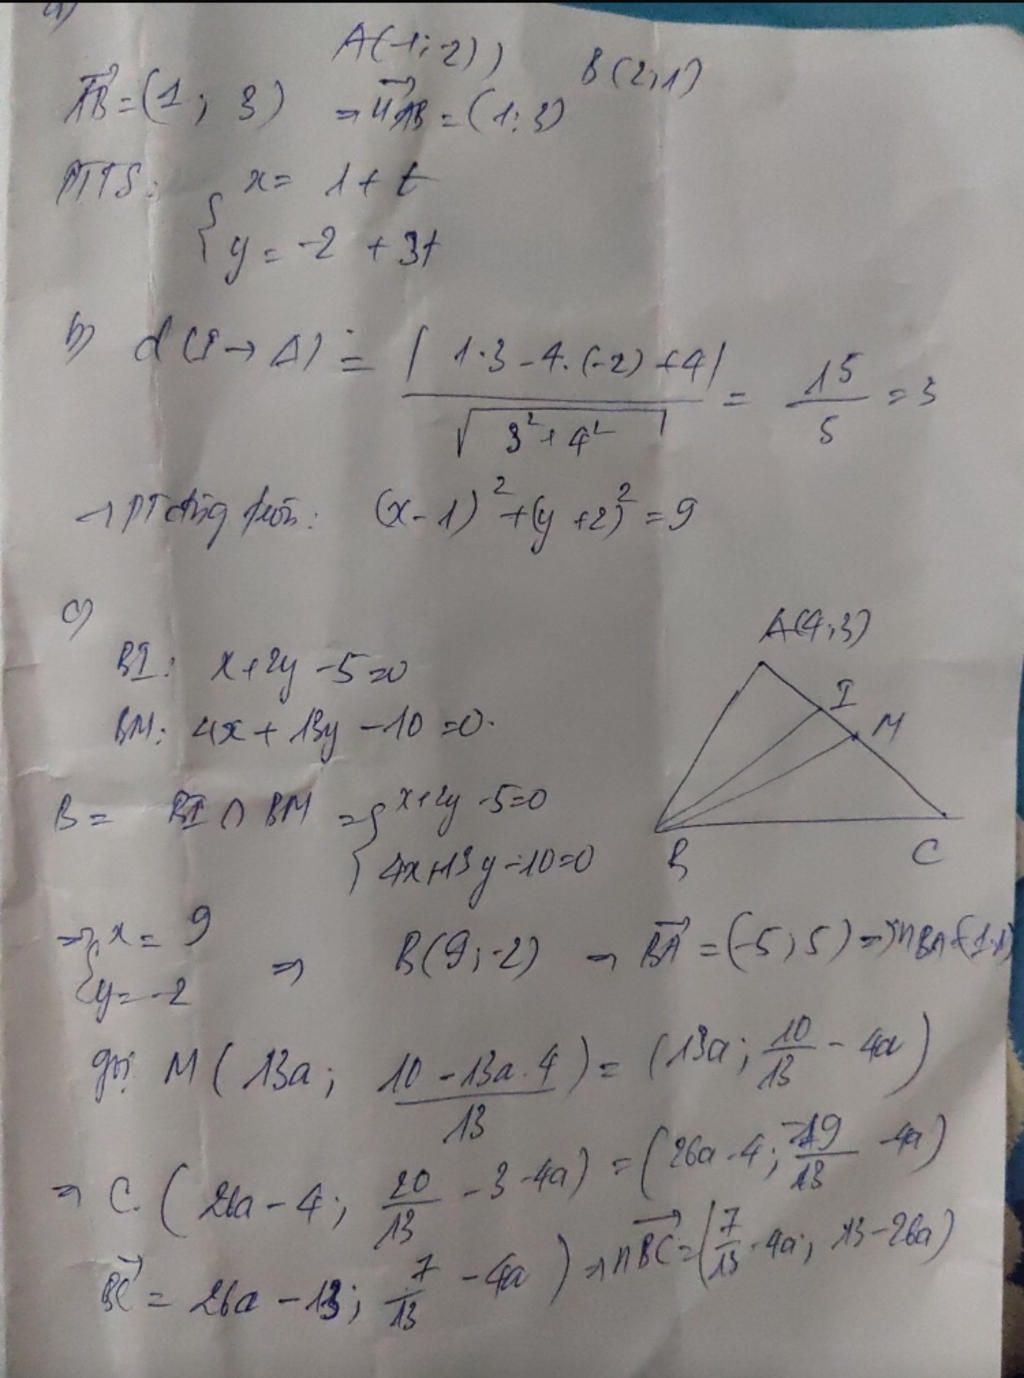 a)
A(-1;-2), B(2;1)
AB = (1; 3) ⇒ u AB = (1;3)
PTTS: { x = 1 + t
y = -2 + 3t
b) d(I → Δ) = |1·3 - 4·(-2) + 4| / √(3² + 4²) = 15/5 = 3
→ PT đường tròn: (x - 1)² + (y + 2)² = 9
c)
A(4;3)
BI: x + 2y - 5 = 0
I
BM: 4x + 13y - 10 = 0.
M
B = BI ∩ BM = { x + 2y - 5 = 0
4x + 13y - 10 = 0
B
C
⇒ { x = 9
y = -2
⇒ B(9;-2) ⇒ BA = (-5; 5) ⇒ n BA = (1;1)
gọi M (13a; (10 - 13a·4)/13) = (13a; 10/13 - 4a)
⇒ C (26a - 4; 20/13 - 3 - 4a) = (26a - 4; -19/13 - 4a)
BC = 26a - 13; 7/13 - 4a) ⇒ n BC = (7/13 - 4a; 13 - 26a)